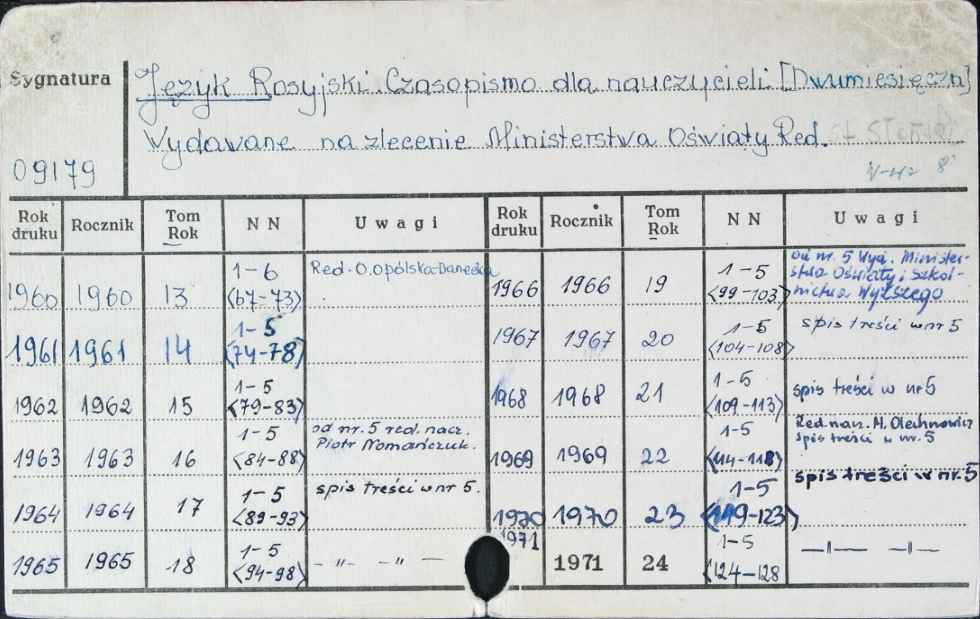 Sygnatura
Język Rosyjski. Czasopismo dla nauczycieli [Dwumiesięczn]
Wydawane na zlecenie Ministerstwa Oświaty Red.
09179
8°
Rok druku Rocznik Tom Rok NN Uwagi Rok druku Rocznik Tom Rok NN Uwagi
1960 1960 13 1-6 <67-73> Red. O. Opolska-Danecka
1961 1961 14 1-5 <74-78>
1962 1962 15 1-5 <79-83>
1963 1963 16 1-5 <84-88> od nr. 5 red. nacz. Piotr Nomańczuk.
1964 1964 17 1-5 <89-93> spis treści w nr 5.
1965 1965 18 1-5 <94-98> - " - - " -
1966 1966 19 1-5 <99-103> Od nr. 5 Wyd. Ministerstwo Oświaty i Szkolnictwa Wyższego
1967 1967 20 1-5 <104-108> spis treści w nr 5
1968 1968 21 1-5 <109-113> spis treści w nr 5
1969 1969 22 1-5 <114-118> Red. nacz. M. Olechnowicz spis treści w nr. 5
1970 1970 23 1-5 <119-123> spis treści w nr. 5
1971 1971 24 1-5 <124-128 —"— —"—